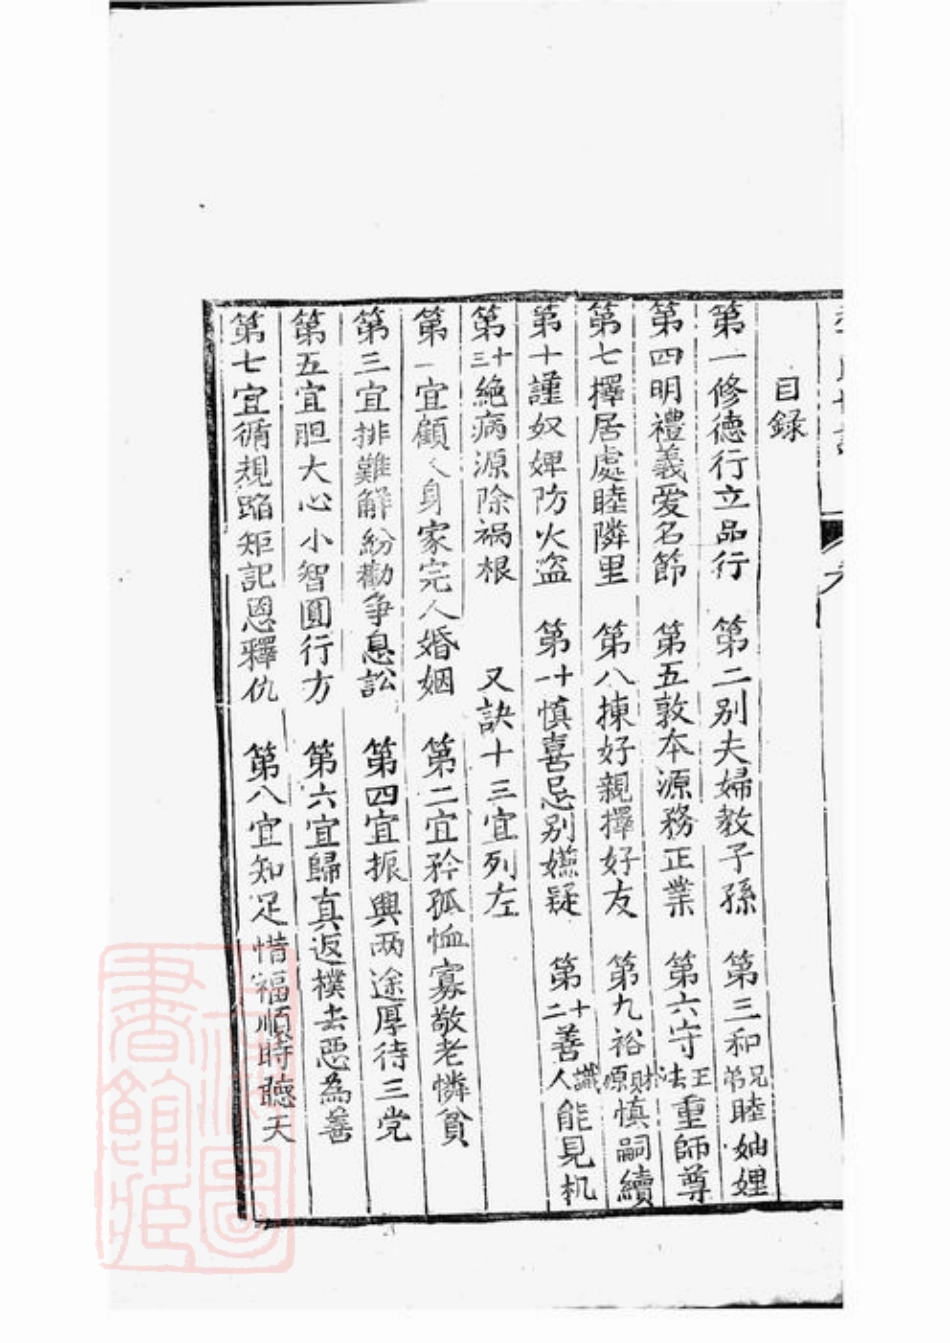 目录
第一修德行立品行 第二别夫婦教子孫 第三和兄弟睦妯娌
第四明禮義爱名節 第五敦本源務正業 第六守王法重師尊
第七擇居處睦隣里 第八揀好親擇好友 第九裕財源慎嗣續
第十謹奴婢防火盗 第十一慎喜忌别嫌疑 第十二善識人能見机
第十三絶病源除禍根 又訣十三宜列左
第一宜顧人身家完人婚姻 第二宜矜孤恤寡敬老憐貧
第三宜排難解紛勸争息訟 第四宜振興两途厚待三党
第五宜胆大心小智圓行方 第六宜歸真返樸去惡為善
第七宜循規蹈矩記恩釋仇 第八宜知足惜福順時聽天